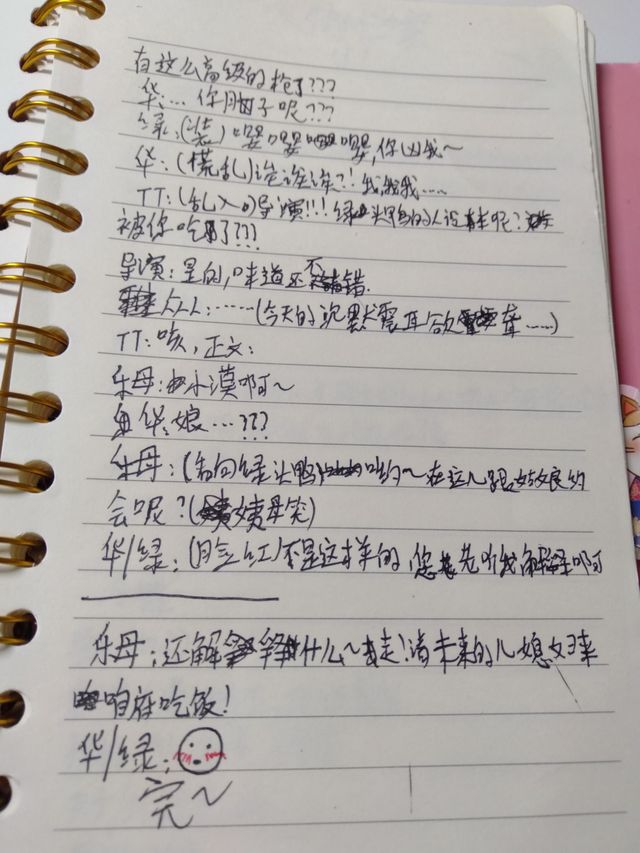 有这么高级的枪了???
华:… 你胆子呢???
绿:(装)嘤嘤嘤嘤,你凶我~
华:(慌乱)诶诶诶?!我我我……
TT:(乱入)导演!!!绿头鸭的人设呢?
被你吃了???
导演:是的,味道还不错.
众人:……(今天的沉默震耳欲聋……)
TT:咳,正文:
乐母:小漠啊~
华:娘…???
乐母:(看向绿头鸭)哟~在这儿跟姑娘约
会呢?(姨母笑)
华/绿:(脸红)不是这样的,您先听我解释啊
乐母:还解释什么~走!请未来的儿媳妇来
咱府吃饭!
华/绿:
完~